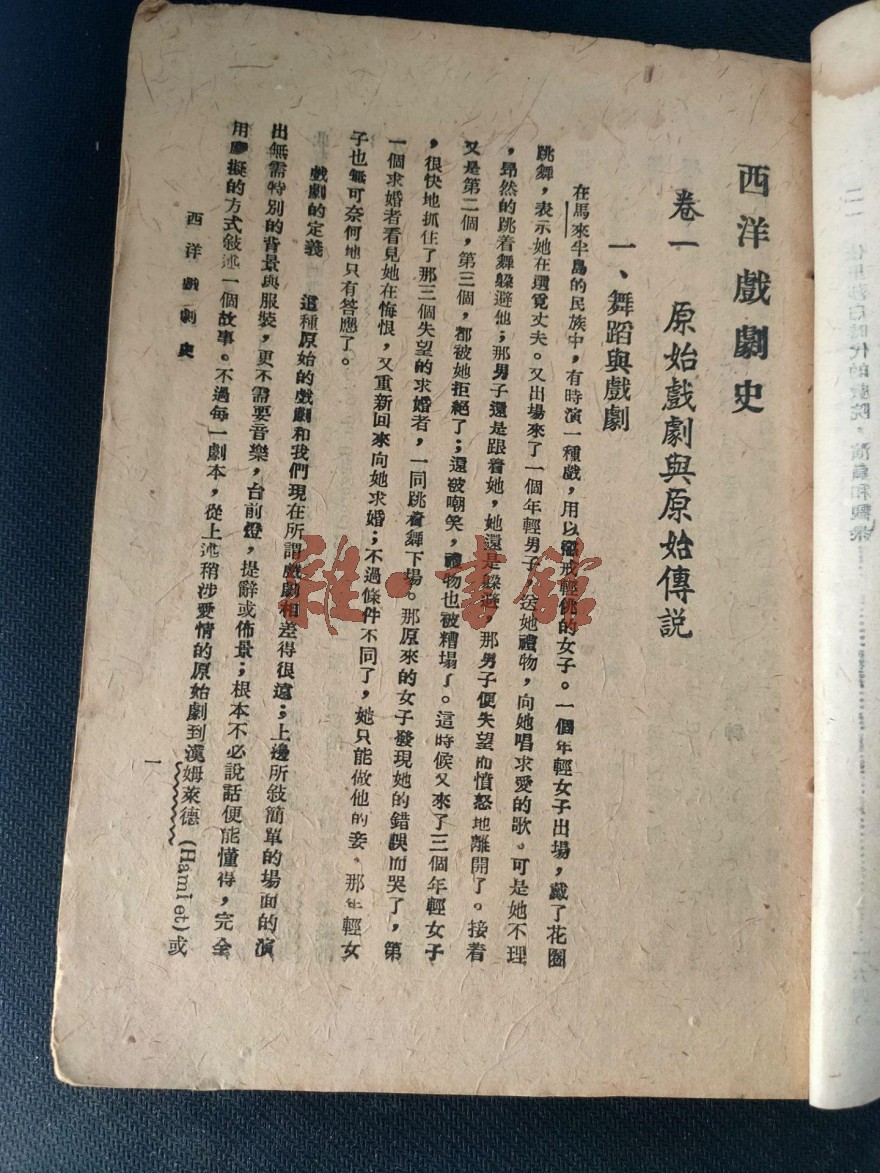 西洋戲劇史
卷一　原始戲劇與原始傳說
一、舞蹈與戲劇
在馬來半島的民族中，有時演一種戲，用以　戒輕佻的女子。一個年輕女子出場，戴了花圈
跳舞，表示她在選覓丈夫。又出場來了一個年輕男子，送她禮物，向她唱求愛的歌。可是她不理
，昂然的跳着舞躲避他；那男子還是跟着她，她還是躲避，那男子便失望而憤怒地離開了。接着
又是第二個，第三個，都被她拒絕了；還被嘲笑，禮物也被糟塌了。這時候又來了三個年輕女子
，很快地抓住了那三個失望的求婚者，一同跳着舞下場。那原來的女子發現她的錯誤而哭了，第
一個求婚者看見她在悔恨，又重新回來向她求婚；不過條件不同了，她只能做他的妾。那年輕女
子也無可奈何地只有答應了。
戲劇的定義　這種原始的戲劇和我們現在所謂戲劇相差得很遠；上邊所敍簡單的場面的演
出無需特別的背景與服裝，更不需要音樂，台前燈，提辭或佈景；根本不必說話便能懂得，完全
用摹擬的方式敍述一個故事。不過每一劇本，從上述稍涉愛情的原始劇到漢姆萊德 (Hamlet) 或
西洋戲劇史
一
雜·書館